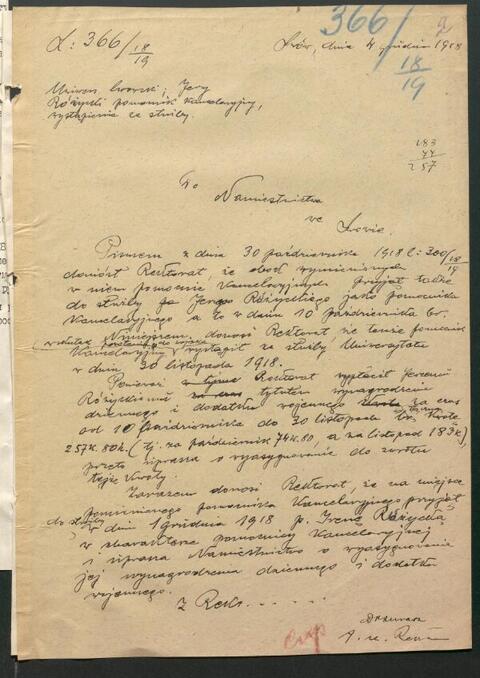 L: 366/18/19
366/18/19
2
Lwów, dnia 4 grudnia 1918
Uniwer. lwowski; Jerzy
Różycki pomocnik kancelaryjny,
wystąpienie ze służby.
183
74
257
Do
Namiestnictwa
we Lwowie.
Pismem z dnia 30 października 1918 l: 300/18/19
doniósł Rektorat, że obok wymienionych
w niem pomocnic kancelaryjnych przyjął także
do służby p. Jerzego Różyckiego jako pomocnika
kancelaryjnego a to w dniu 10 października br.
Niniejszem donosi Rektorat, że tenże pomocnik
kancelaryjny wystąpił ze służby Uniwersytetu
w dniu 30 listopada 1918.
Ponieważ Rektorat wypłacił Jerzemu
Różyckiemu tytułem wynagrodzenia
dziennego i dodatku wojennego za czas
od 10 października do 30 listopada br. kwotę
257K.80h. (tj. za październik 74K.80, a za listopad 183K)
przeto uprasza o wyasygnowanie do zwrotu
tejże kwoty.
Zarazem donosi Rektorat, że na miejsce
pomienionego pomocnika kancelaryjnego przyjął
do służby
w dniu 1 grudnia 1918 p. Irenę Różycką
w charakterze pomocnicy kancelaryjnej
i uprasza Namiestnictwo o wyasygnowanie
jej wynagrodzenia dziennego i dodatku
wojennego.
Z Rekt......
exp